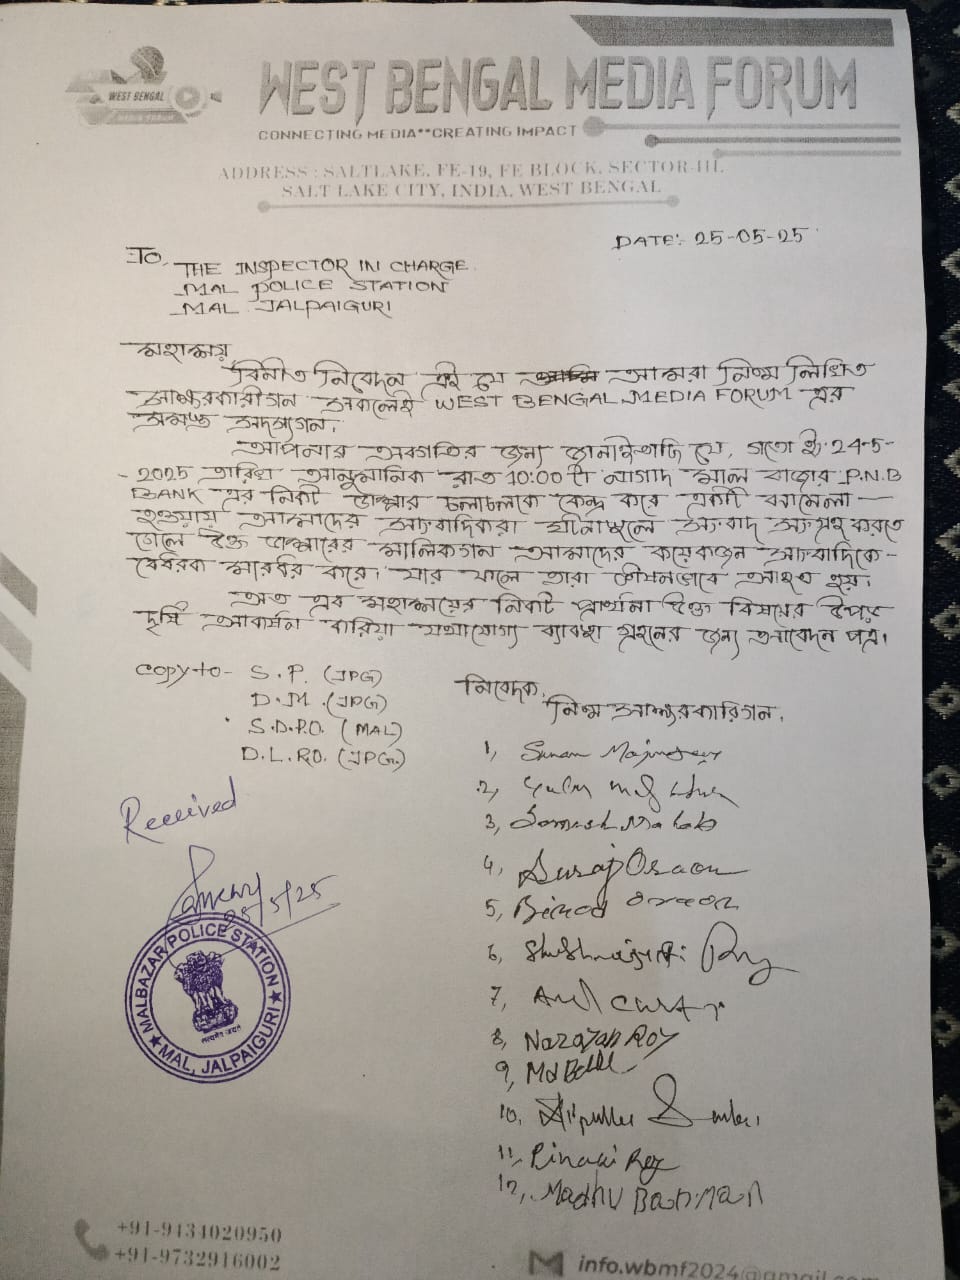 WEST BENGAL
MEDIA FORUM
WEST BENGAL MEDIA FORUM
CONNECTING MEDIA**CREATING IMPACT
ADDRESS : SALTLAKE, FE-19, FE BLOCK, SECTOR-III,
SALT LAKE CITY, INDIA, WEST BENGAL
DATE: 25-05-25
To,
THE INSPECTOR IN CHARGE
MAL POLICE STATION
MAL JALPAIGURI
মহাশয়
বিনীত নিবেদন এই যে আমরা নিম্ন লিখিত
সাক্ষরকারীগন সকলেই WEST BENGAL MEDIA FORUM এর
সমস্ত সদস্যগন।
আপনার অবগতির জন্য জানাইতেছি যে, গতো ইং 24-5-
-2025 তারিখ আনুমানিক রাত 10:00 টা নাগাদ মাল বাজার P.N.B
BANK এর নিকট ডাম্পার চলাচলকে কেন্দ্র করে একটি ঝামেলা
হওয়ায় আমাদের সাংবাদিকরা ঘটনাস্থলে সংবাদ সংগ্রহ করতে
গেলে উক্ত ডাম্পারের মালিকগন আমাদের কয়েকজন সাংবাদিককে
বেধরক মারধর করে। যার ফলে তারা ভীষনভাবে আহত হয়।
অত এব মহাশয়ের নিকট প্রার্থনা উক্ত বিষয়ের উপর
দৃষ্টি আকর্ষন করিয়া যথাযোগ্য ব্যাবস্থা গ্রহনের জন্য আবেদন পত্র।
copy to - S.P. (JPG)
D.M. (JPG)
S.D.P.O. (MAL)
D.L.R.O. (JPG.)
নিবেদক,
নিম্ন সাক্ষরকারিগন,
1, Suman
2,
3,
4, Suraj Oraon
5, Binod Oraon
6, Roy
7,
8, Narayan Roy
9, Md
10,
11, Pinaki Roy
12, Madhu Barman
Received
25/5/25
MALBAZAR POLICE STATION
सत्यमेव जयते
MAL, JALPAIGURI
+91-9434020950
+91-9732916002
info.wbmf2024@gmail.com